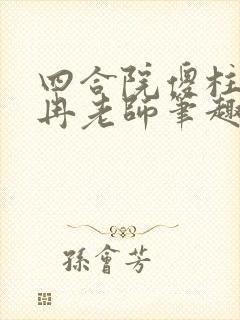 四合院傻柱
冉老師筆趣
孫會芳